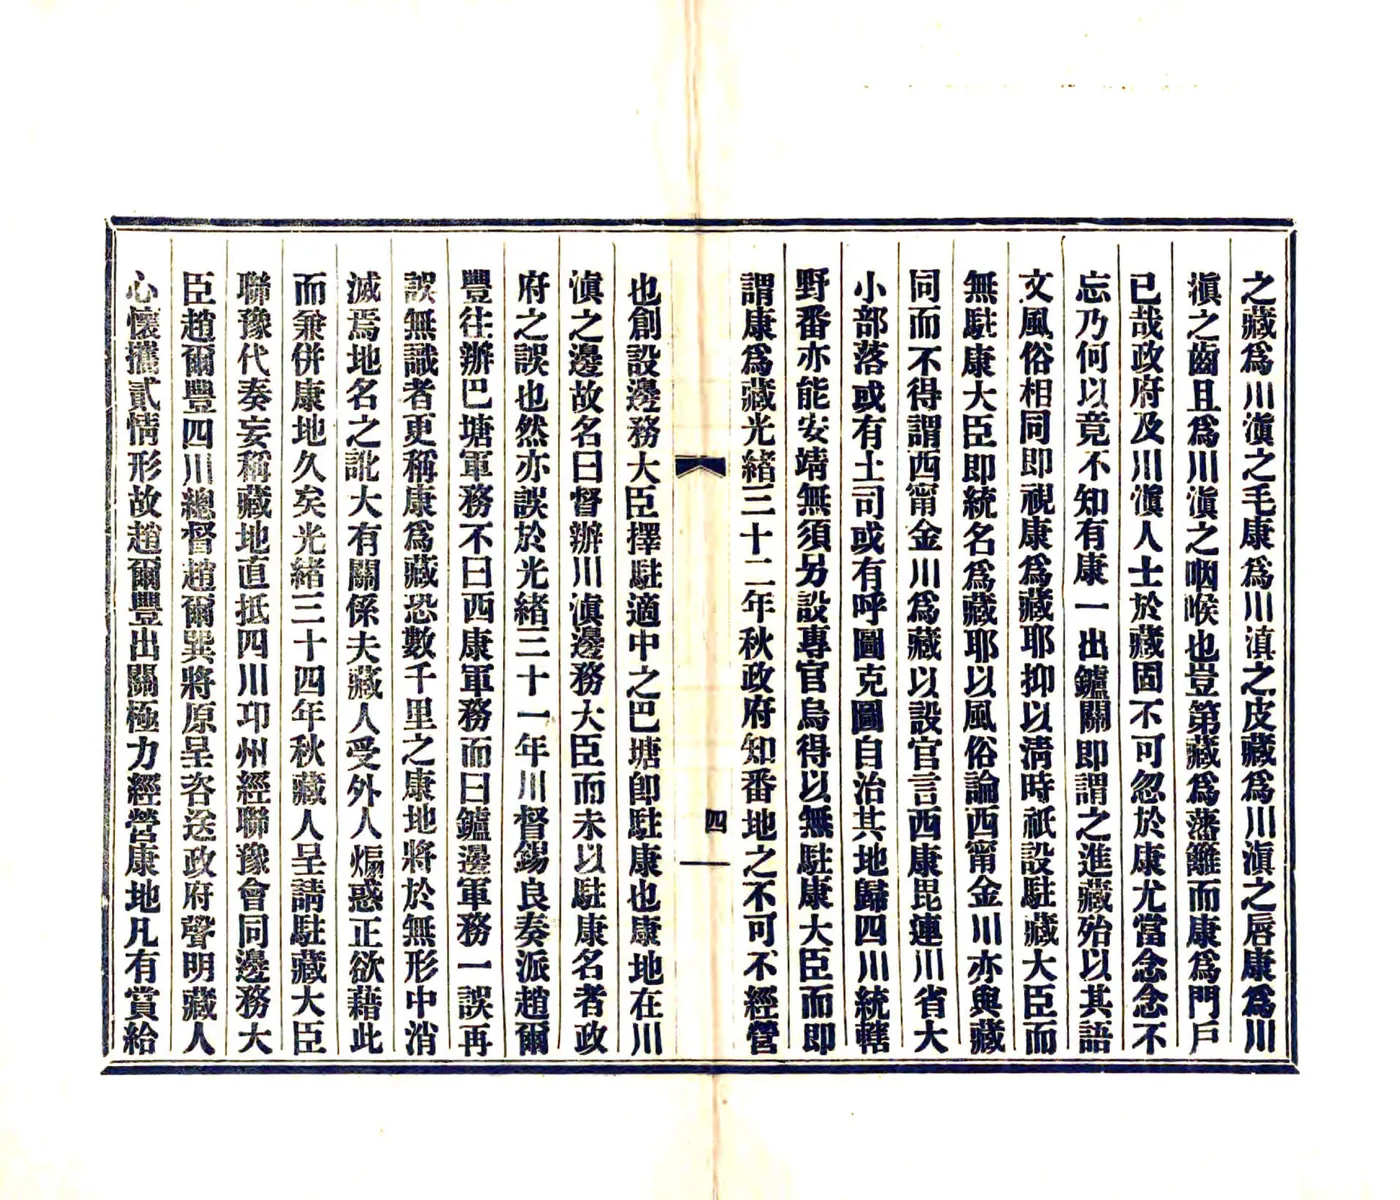 之藏爲川滇之毛康爲川滇之皮藏爲川滇之唇康爲川
滇之齒且爲川滇之咽喉也豈第藏爲藩籬而康爲門戶
已哉政府及川滇人士於藏固不可忽於康尤當念念不
忘乃何以竟不知有康一出鑪關即謂之進藏殆以其語
文風俗相同即視康爲藏耶抑以淸時祇設駐藏大臣而
無駐康大臣即統名爲藏耶以風俗論西甯金川亦與藏
同而不得謂西甯金川爲藏以設官言西康毘連川省大
小部落或有土司或有呼圖克圖自治其地歸四川統轄
野番亦能安靖無須另設專官烏得以無駐康大臣而即
謂康爲藏光緒三十二年秋政府知番地之不可不經營
四
也創設邊務大臣擇駐適中之巴塘卽駐康也康地在川
滇之邊故名曰督辦川滇邊務大臣而未以駐康名者政
府之誤也然亦誤於光緒三十一年川督錫良奏派趙爾
豐往辦巴塘軍務不曰西康軍務而曰鑪邊軍務一誤再
誤無識者更稱康爲藏恐數千里之康地將於無形中消
滅焉地名之訛大有關係夫藏人受外人煽惑正欲藉此
而兼併康地久矣光緒三十四年秋藏人呈請駐藏大臣
聯豫代奏妄稱藏地直抵四川卭州經聯豫會同邊務大
臣趙爾豐四川總督趙爾巽將原呈咨送政府聲明藏人
心懷攜貳情形故趙爾豐出關極力經營康地凡有賞給